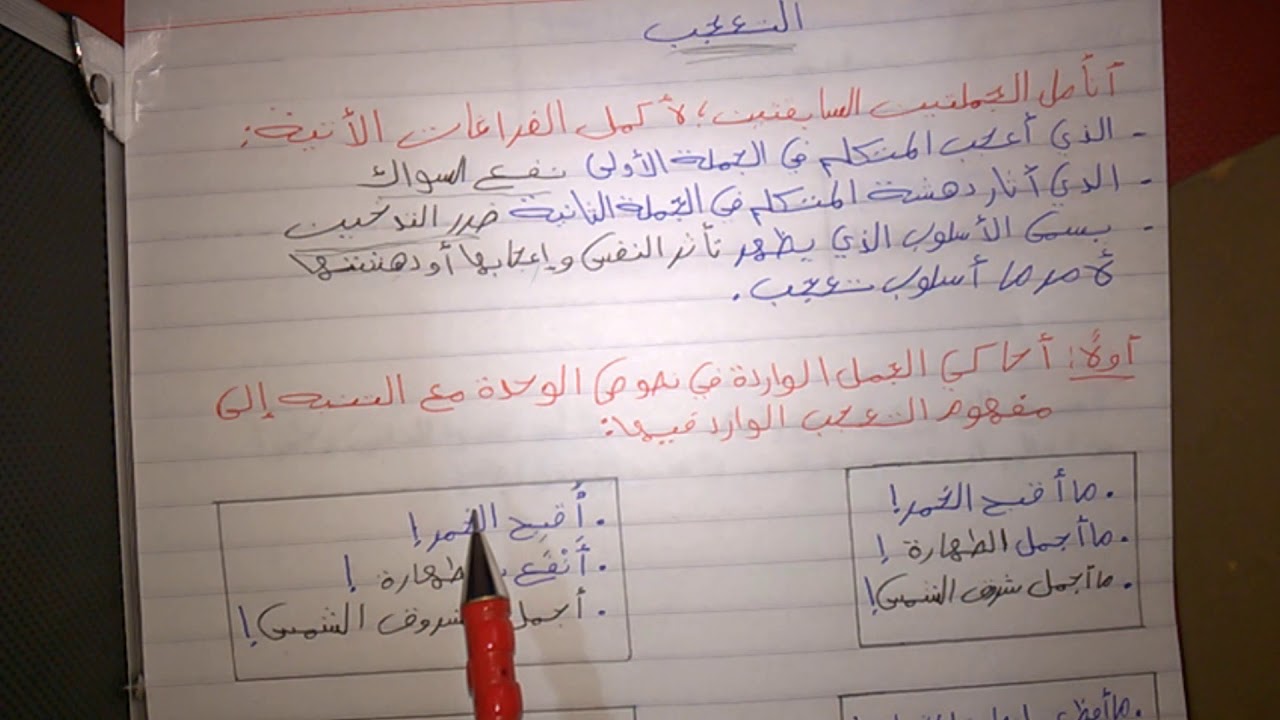 التعجب
أتأمل الجملتين السابقتين، لأكمل الفراغات الأتية:
- الذي أعجب المتكلم في الجملة الأولى نفع السواك
- الذي أثار دهشة المتكلم في الجملة الثانية ضرر التدخين
- يسمى الأسلوب الذي يظهر تأثر النفس وإعجابها أو دهشتها
لأمر ما أسلوب تعجب.
أولاً: أحاكي الجمل الواردة في نصوص الوحدة مع التنبه إلى
مفهوم التعجب الوارد فيها:
. ما أقبح الخمر!
. ما أجمل الطهارة !
. ما أجمل شروق الشمس!
. أَقبِح الخمر!
. أَنْفَع طهارة !
. أجمل شروق الشمس!